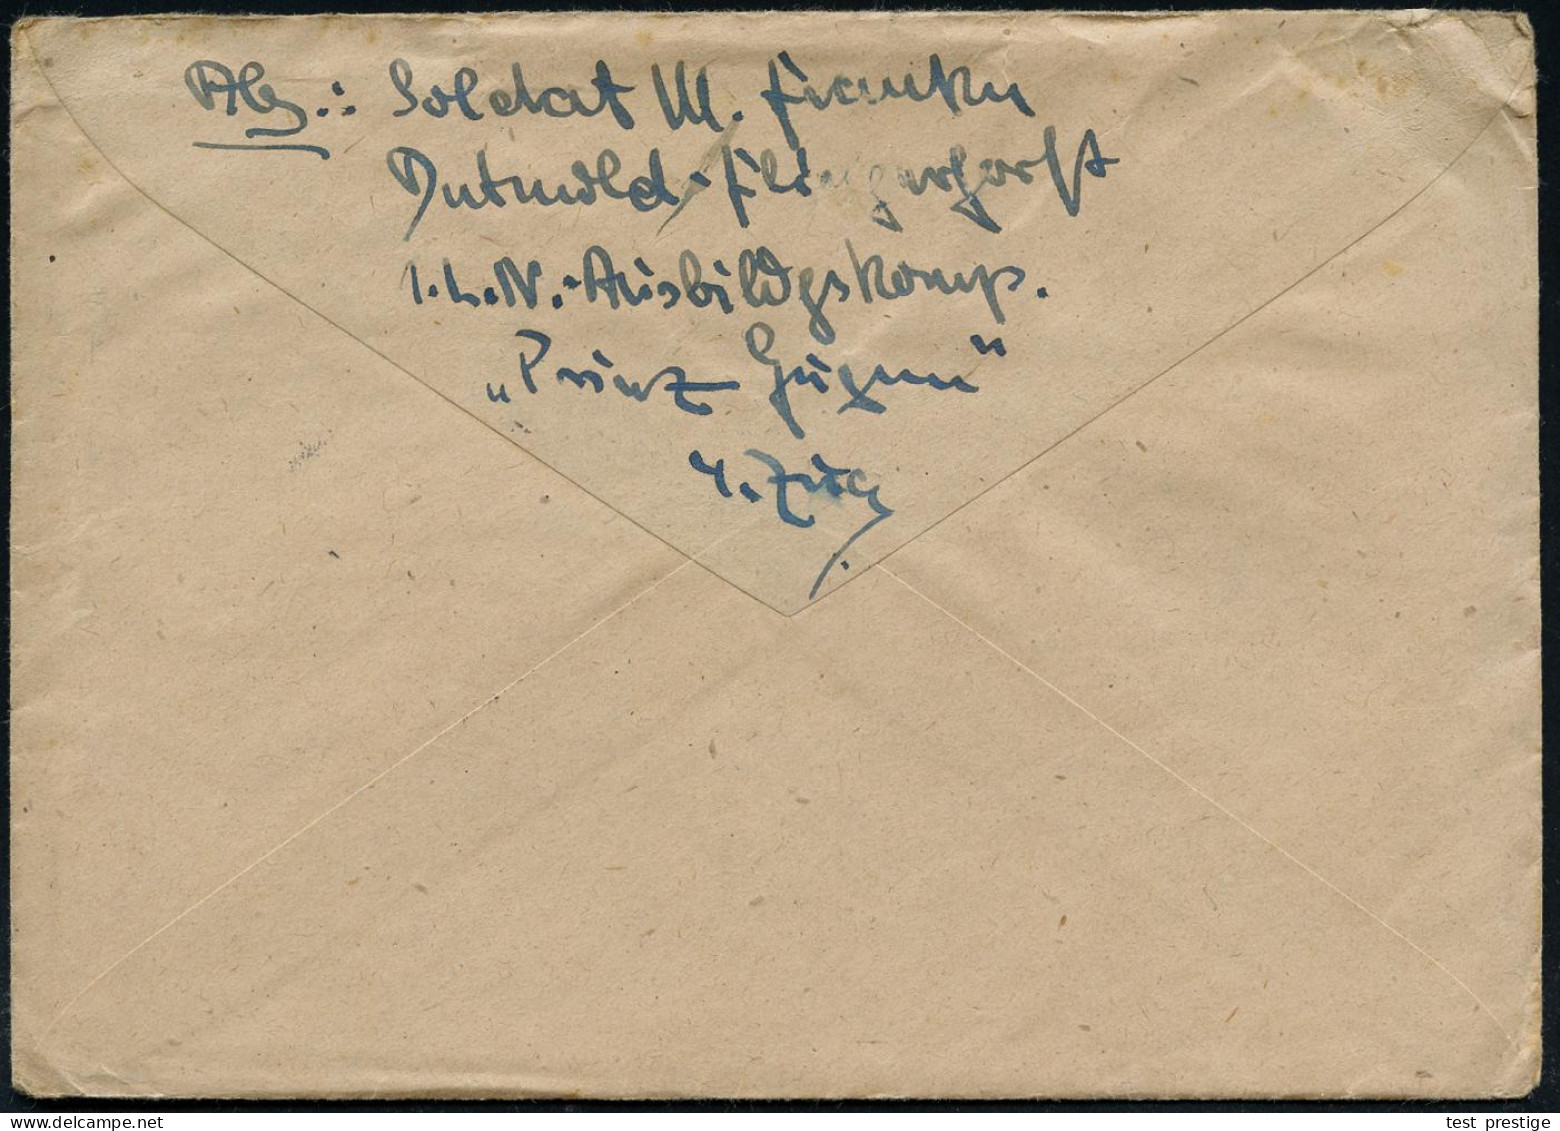 Abs.: Soldat M. Franken
Detmold-Fliegerhorst
1.L.N.-Ausbildgskomp.
„Prinz Eugen"
4. Zug
test prestige